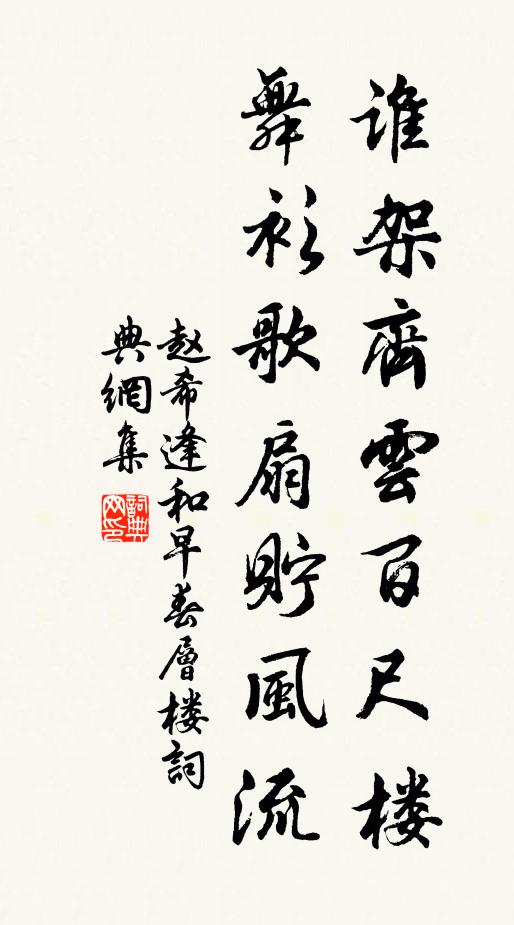 谁架齊雲百尺楼
舞衫歌扇貯風流
赵希逢和早春層楼詞
典網集
詞典网印